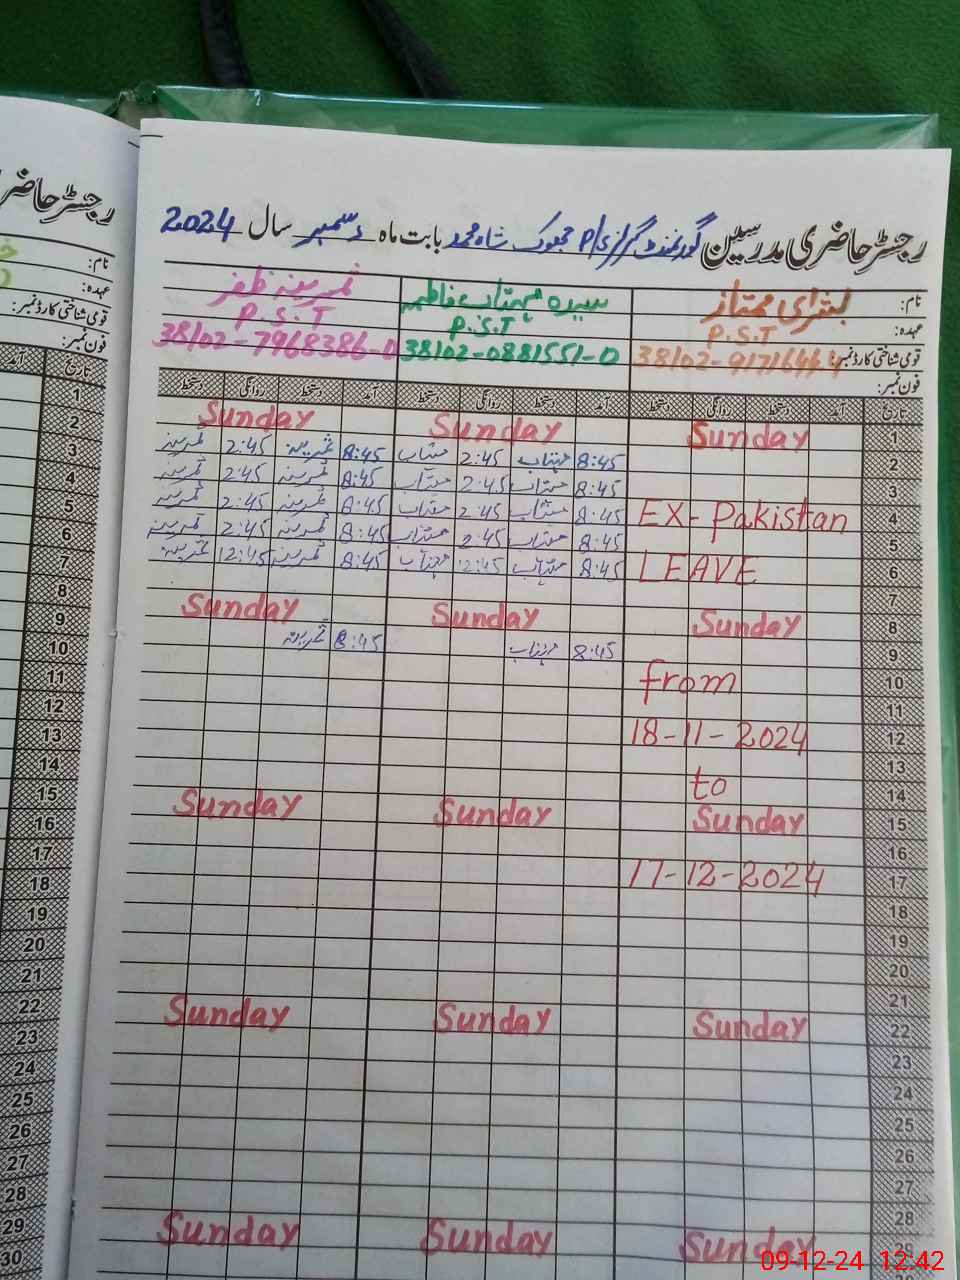 رجسٹر حاضری مدرسین گورنمنٹ گرلز P/ جھوک شاہ محمد بابت ماہ دسمبر سال 2024
رجسٹر حاضر
نام: بشریٰ ممتاز سیدہ مہتاب فاطمہ ثمرینہ ظفر
نام:
عہدہ: P.S.T P.S.T P.S.T
عہدہ:
قومی شناختی کارڈ نمبر: 38102-0881551-0 38102-7968386-0
قومی شناختی کارڈ نمبر:
فون نمبر:
فون نمبر:
تاریخ آمد دستخط روانگی دستخط آمد دستخط روانگی دستخط آمد دستخط روانگی دستخط
تاریخ
آمد
1 Sunday Sunday Sunday
2 8:45 مہتاب 2:45 مہتاب 8:45 ثمرینہ 2:45 ثمرینہ
3 8:45 مہتاب 2:45 مہتاب 8:45 ثمرینہ 2:45 ثمرینہ
4 EX-Pakistan 8:45 مہتاب 2:45 مہتاب 8:45 ثمرینہ 2:45 ثمرینہ
5 8:45 مہتاب 2:45 مہتاب 8:45 ثمرینہ 2:45 ثمرینہ
6 LEAVE 8:45 مہتاب 12:45 مہتاب 8:45 ثمرینہ 12:45 ثمرینہ
7
8 Sunday Sunday Sunday
9 8:45 مہتاب 8:45 ثمرینہ
10 from
11
12 18-11-2024
13
14 to
15 Sunday Sunday Sunday
16
17 17-12-2024
18
19
20
21
22 Sunday Sunday Sunday
23
24
25
26
27
28
29 Sunday Sunday Sunday
1
2
3
4
5
6
7
8
9
10
11
12
13
14
15
16
17
18
19
20
21
22
23
24
25
26
27
28
29
30
09-12-24 12:42